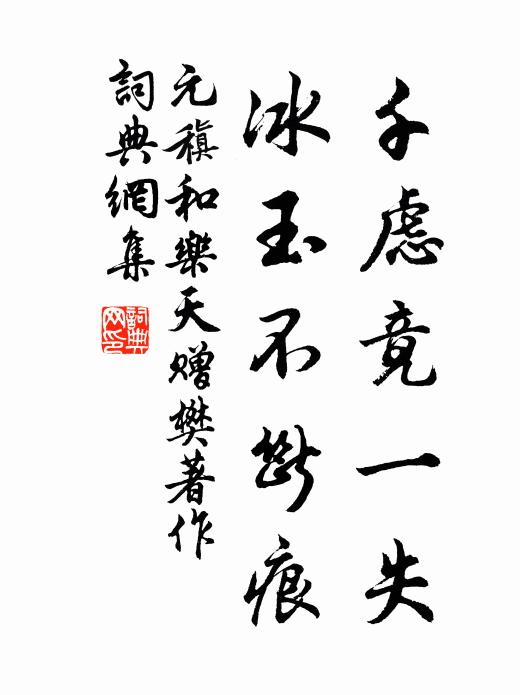 千慮竟一失
冰玉不斷痕
元稹和樂天贈樊著作
詞典網集
詞典
网印